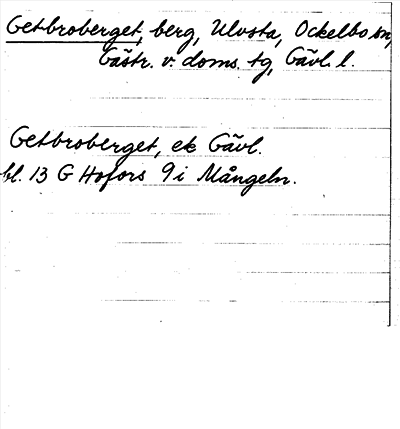 Getbroberget, berg, Ulvsta, Ockelbo sn,
Gästr. v. doms. tg, Gävl. l.
Getbroberget, ek Gävl.
bl. 13 G Hofors 9 i Mångeln.